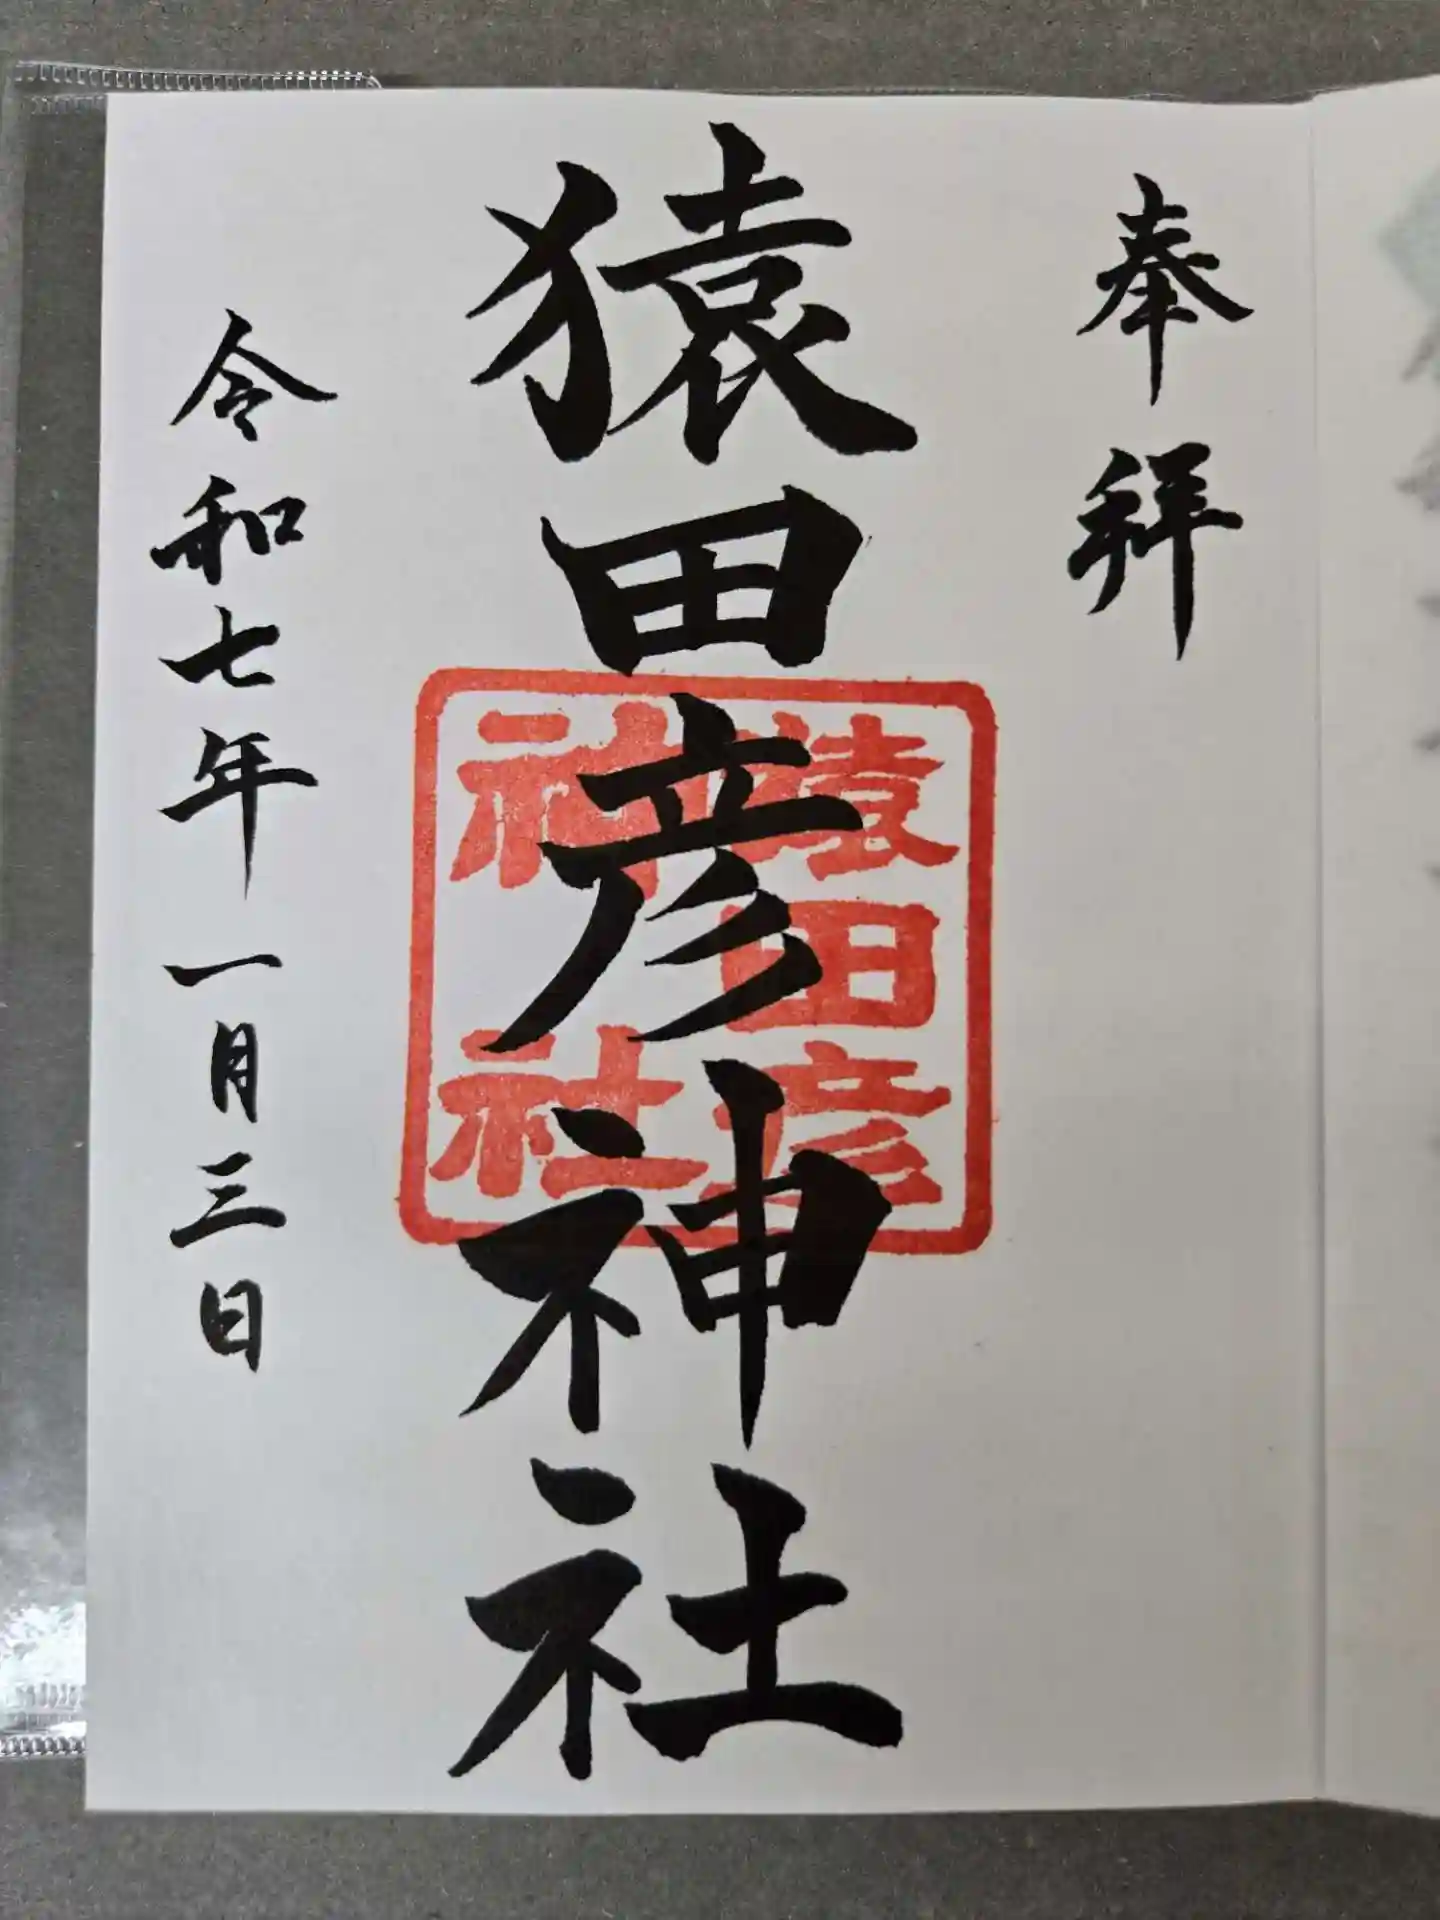 奉拜
猿田彦神社
猿田彦
神社
令和七年一月三日